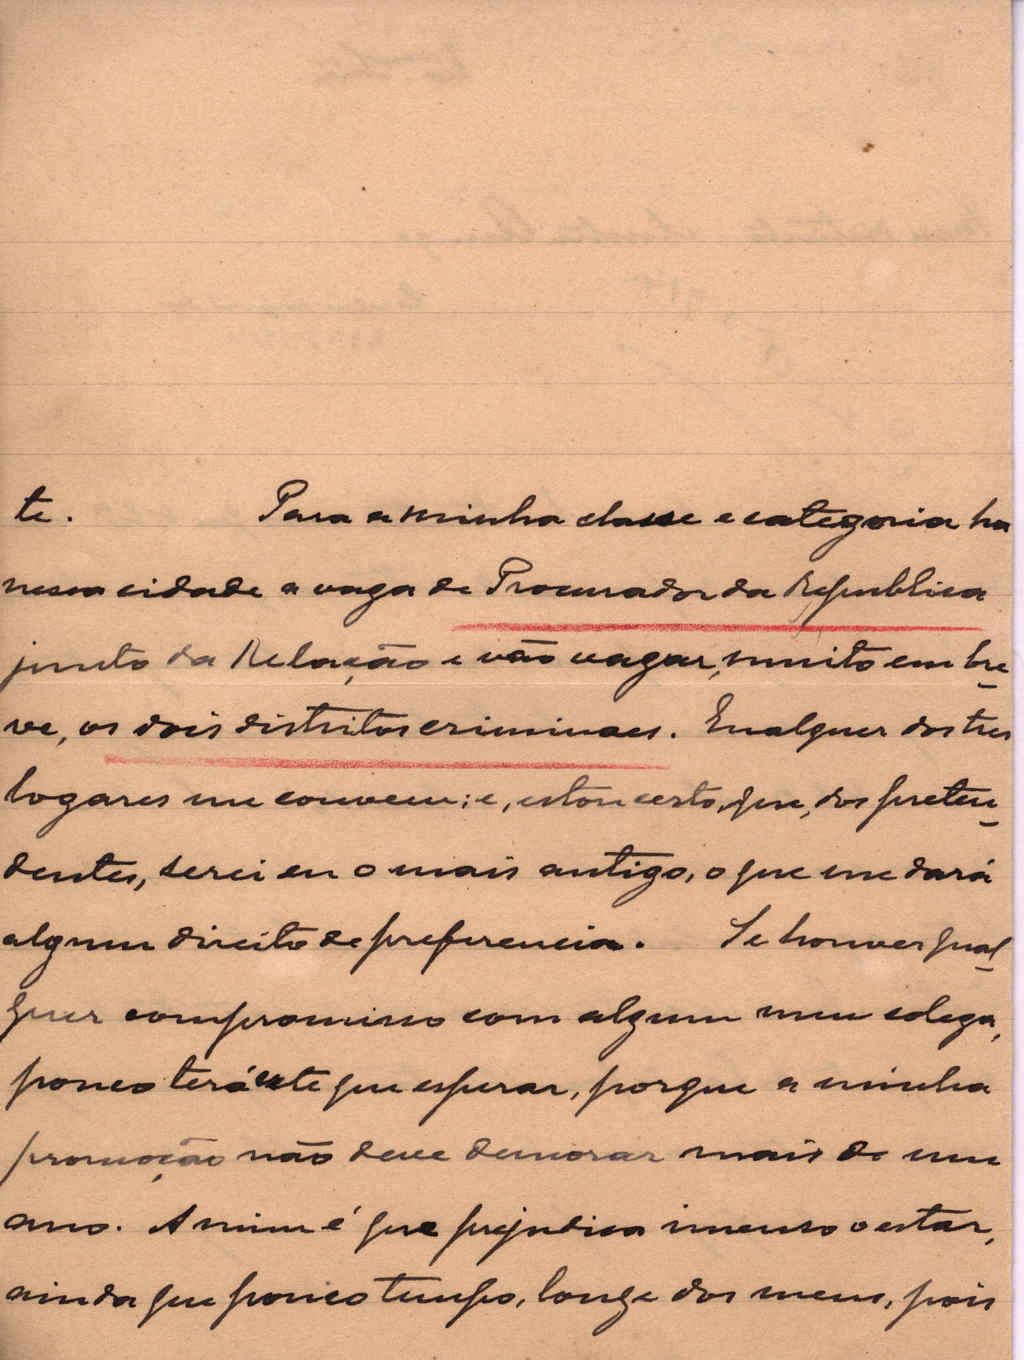 te. Para a minha classe e categoria ha
nessa cidade a vaga de Procurador da Republica
junto da Relação e vão vagar, muito em bre-
ve, os dois distritos criminaes. Qualquer dos tres
logares me convem; e, estou certo, que, dos preten-
dentes, serei eu o mais antigo, o que me dará
algum direito de preferencia. Se houver qual-
quer compromisso com algum meu colega,
pouco terá este que esperar, porque a minha
promoção não deve demorar mais de um
ano. A mim é que prejudica imenso o estar,
ainda que pouco tempo, longe dos meus, pois